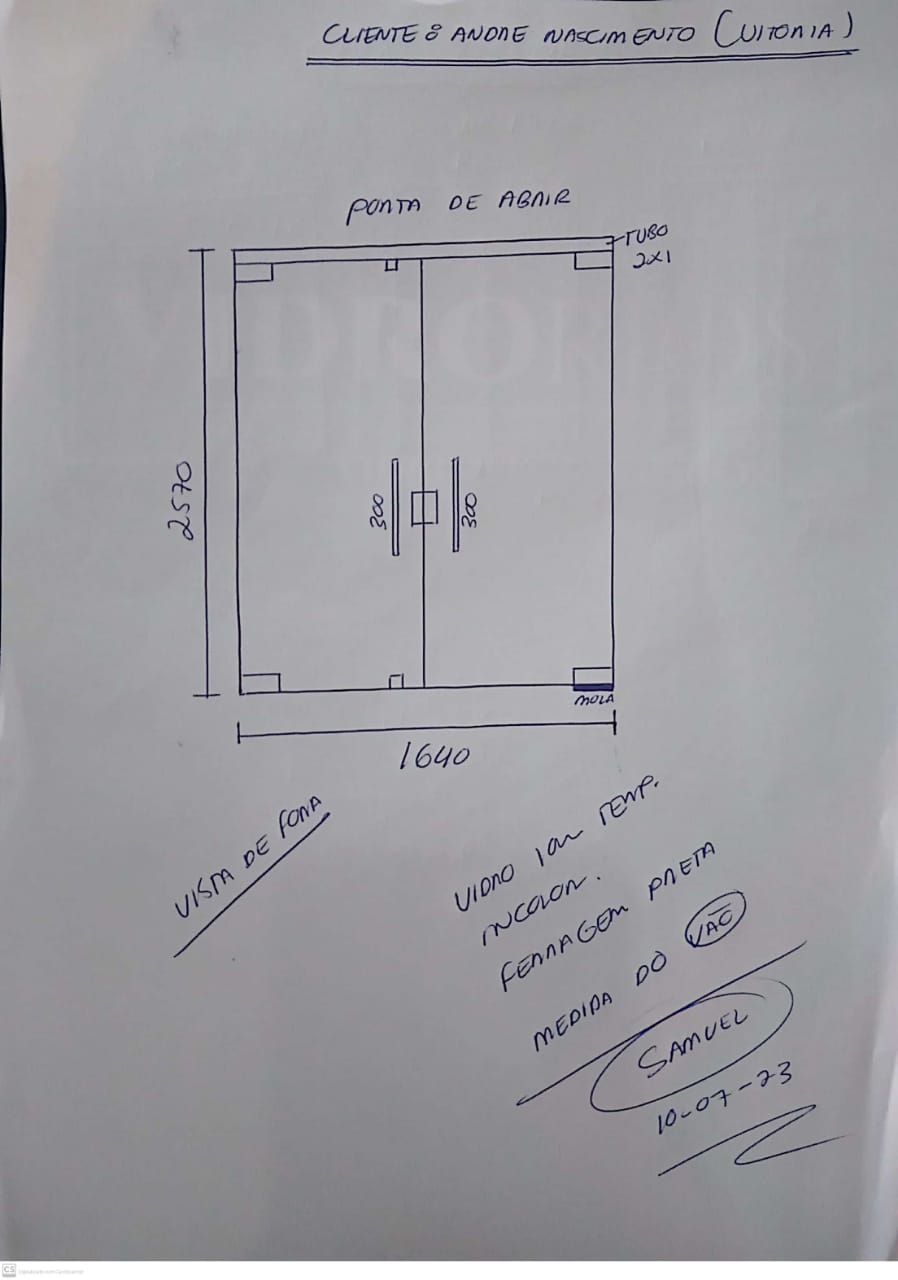 CLIENTE: ANDRE NASCIMENTO (VITORIA)
PORTA DE ABRIR
TUBO
2x1
2570
300
300
MOLA
1640
VISTA DE FORA
VIDRO 10m TEMP.
INCOLOR.
FERRAGEM PRETA
MEDIDA DO VÃO
SAMUEL
10-07-23
CS